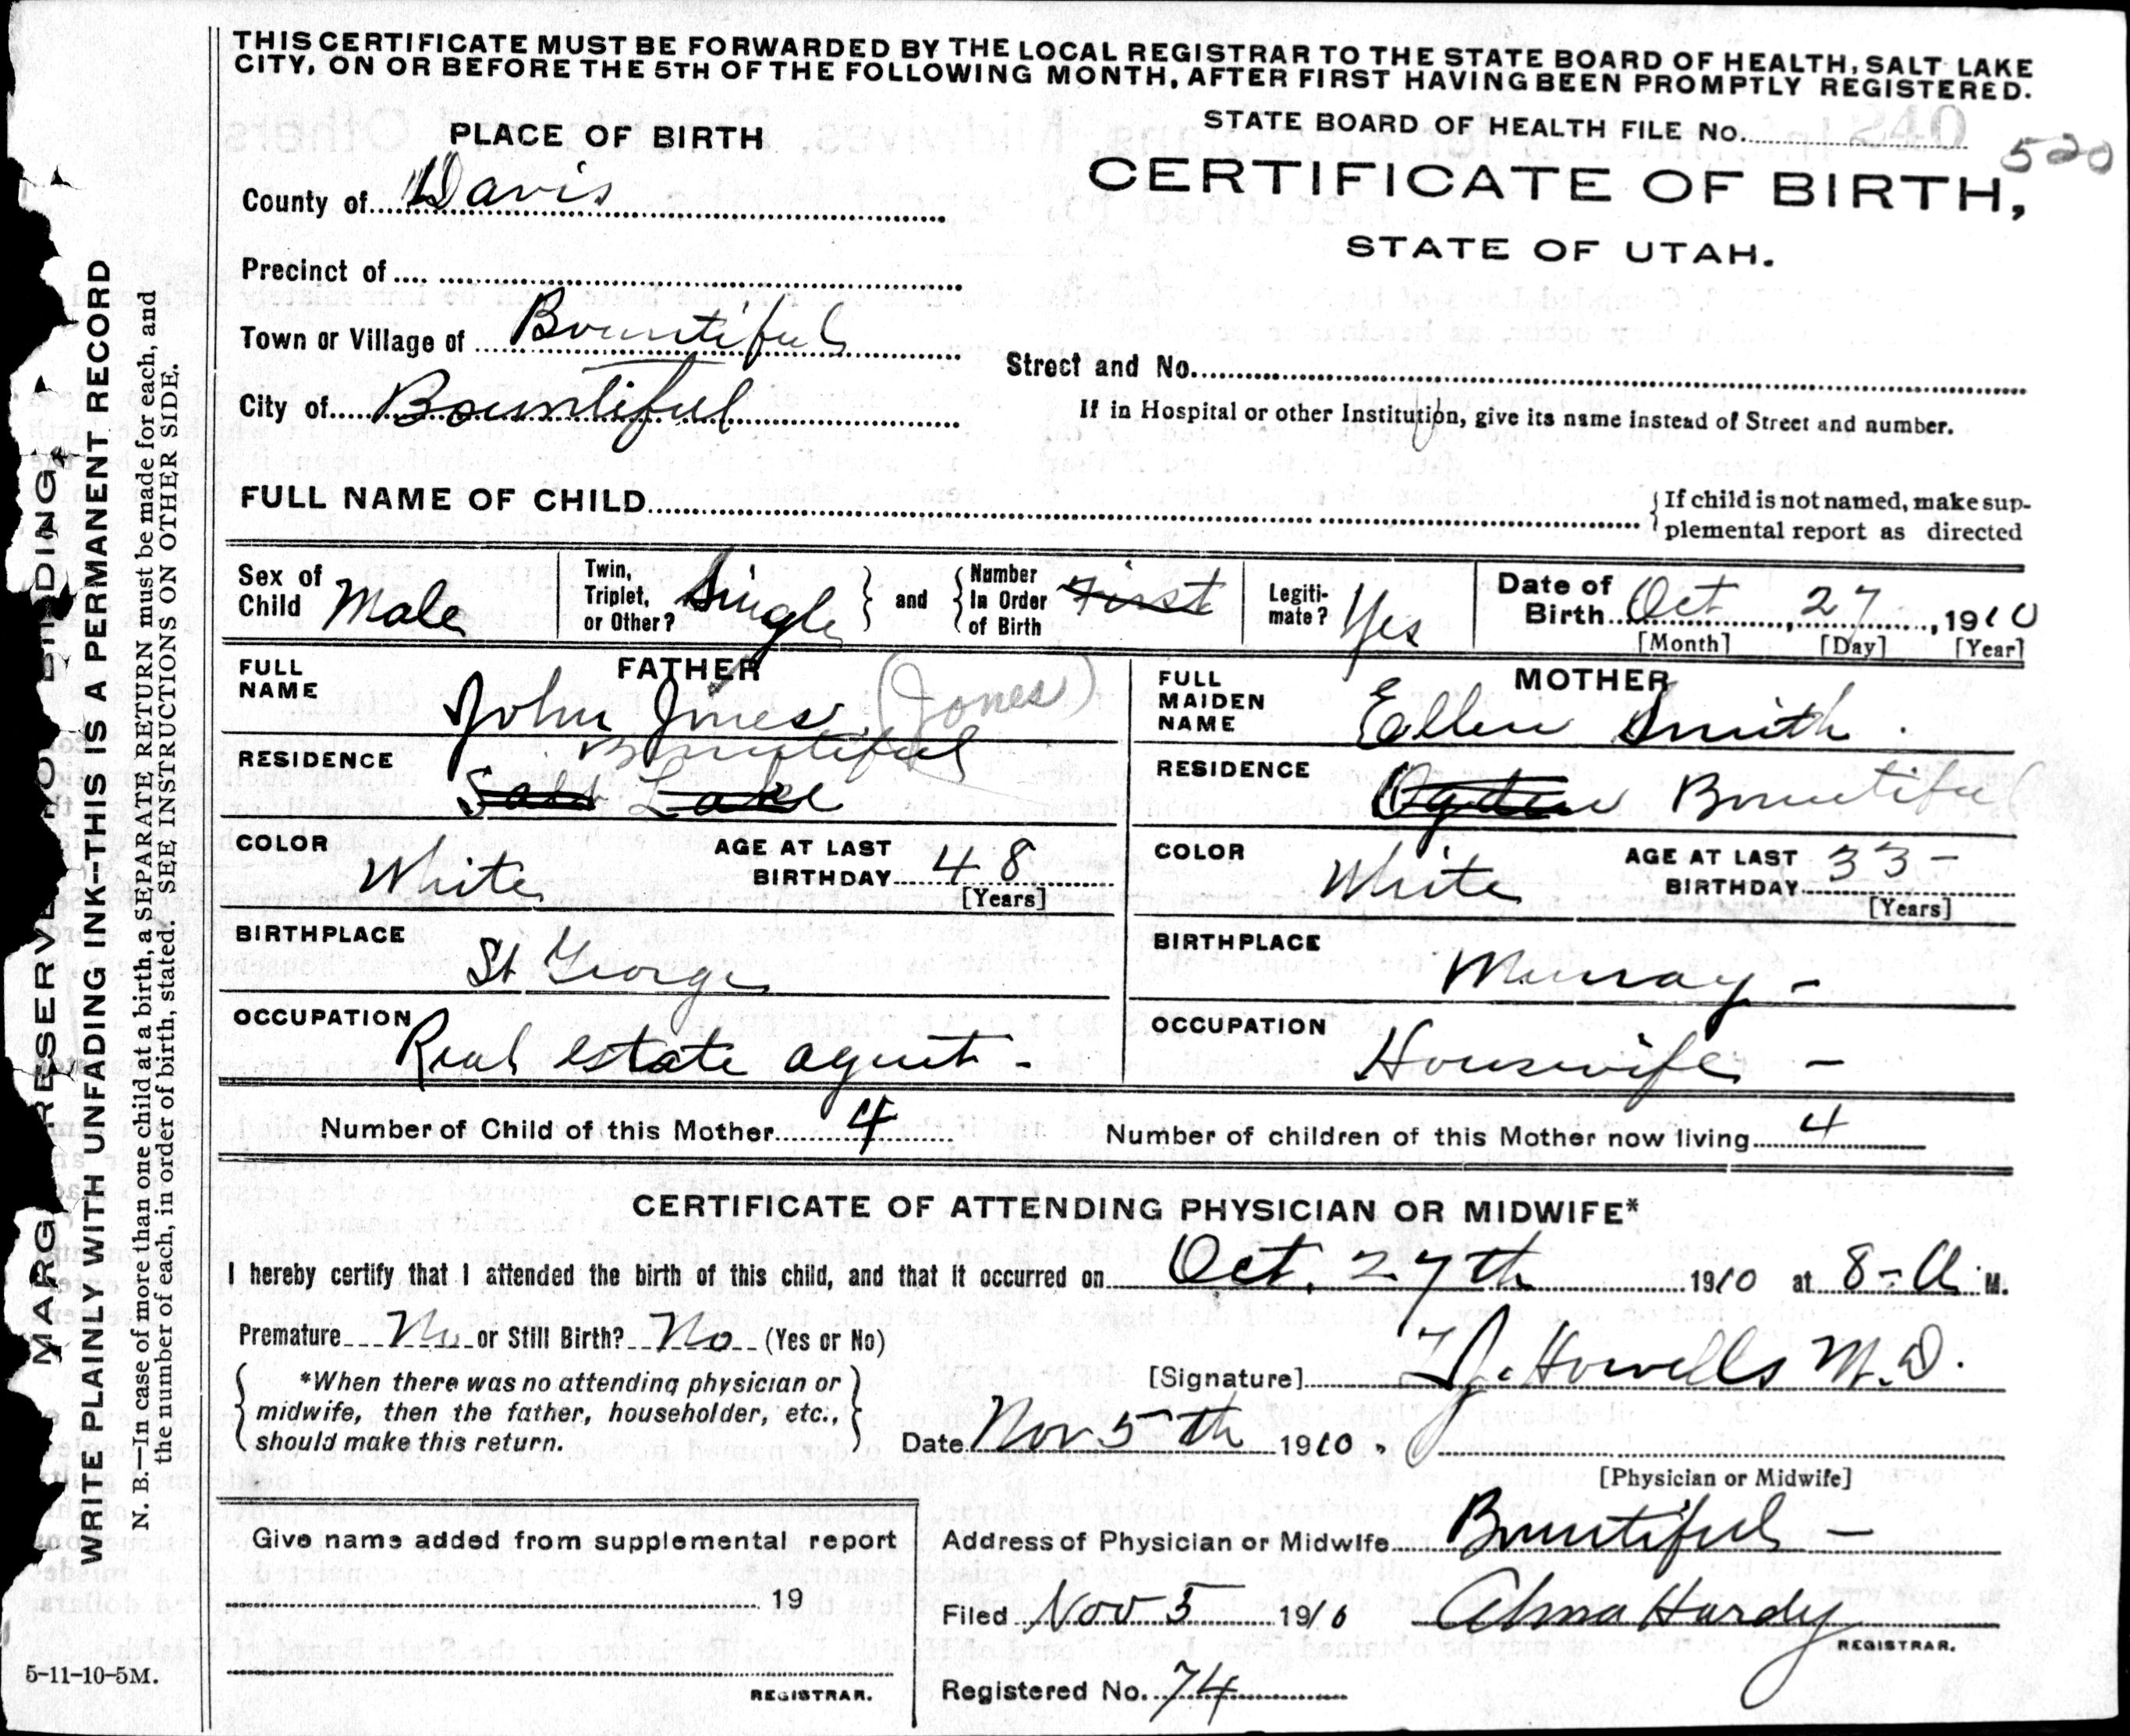 THIS CERTIFICATE MUST BE FORWARDED BY THE LOCAL REGISTRAR TO THE STATE BOARD OF HEALTH, SALT LAKE
CITY, ON OR BEFORE THE 5TH OF THE FOLLOWING MONTH, AFTER FIRST HAVING BEEN PROMPTLY REGISTERED.
PLACE OF BIRTH
STATE BOARD OF HEALTH FILE No. 240
520
County of Davis
CERTIFICATE OF BIRTH,
STATE OF UTAH.
Precinct of
Town or Village of Bountiful
Street and No.
City of Bountiful
If in Hospital or other Institution, give its name instead of Street and number.
FULL NAME OF CHILD
If child is not named, make sup-
plemental report as directed
Sex of Child Male
Twin, Triplet, or Other? Single
and
Number In Order of Birth First
Legiti-mate? Yes
Date of Birth Oct 27, 1910
[Month] [Day] [Year]
FATHER
FULL NAME John Jones (Jones)
RESIDENCE Bountiful
Salt Lake
COLOR White
AGE AT LAST BIRTHDAY 48
[Years]
BIRTHPLACE St George
OCCUPATION Real estate agent -
MOTHER
FULL MAIDEN NAME Ellen Smith.
RESIDENCE Ogden Bountiful
COLOR White
AGE AT LAST BIRTHDAY 33 -
[Years]
BIRTHPLACE Murray -
OCCUPATION Housewife -
Number of Child of this Mother 4
Number of children of this Mother now living 4
CERTIFICATE OF ATTENDING PHYSICIAN OR MIDWIFE*
I hereby certify that I attended the birth of this child, and that it occurred on Oct. 27th 1910 at 8-A.M.
Premature No or Still Birth? No (Yes or No)
*When there was no attending physician or
midwife, then the father, householder, etc.,
should make this return.
[Signature] Howells M.D.
Date Nov 5th 1910.
[Physician or Midwife]
Give name added from supplemental report
19
REGISTRAR.
Address of Physician or Midwife Bountiful -
Filed Nov 5 1910 Alma Hardy
REGISTRAR.
Registered No. 74
5-11-10-5M.
MARG RESERVE BINDING
WRITE PLAINLY WITH UNFADING INK--THIS IS A PERMANENT RECORD
N. B.—In case of more than one child at a birth, a SEPARATE RETURN must be made for each, and
the number of each, in order of birth, stated. SEE INSTRUCTIONS ON OTHER SIDE.